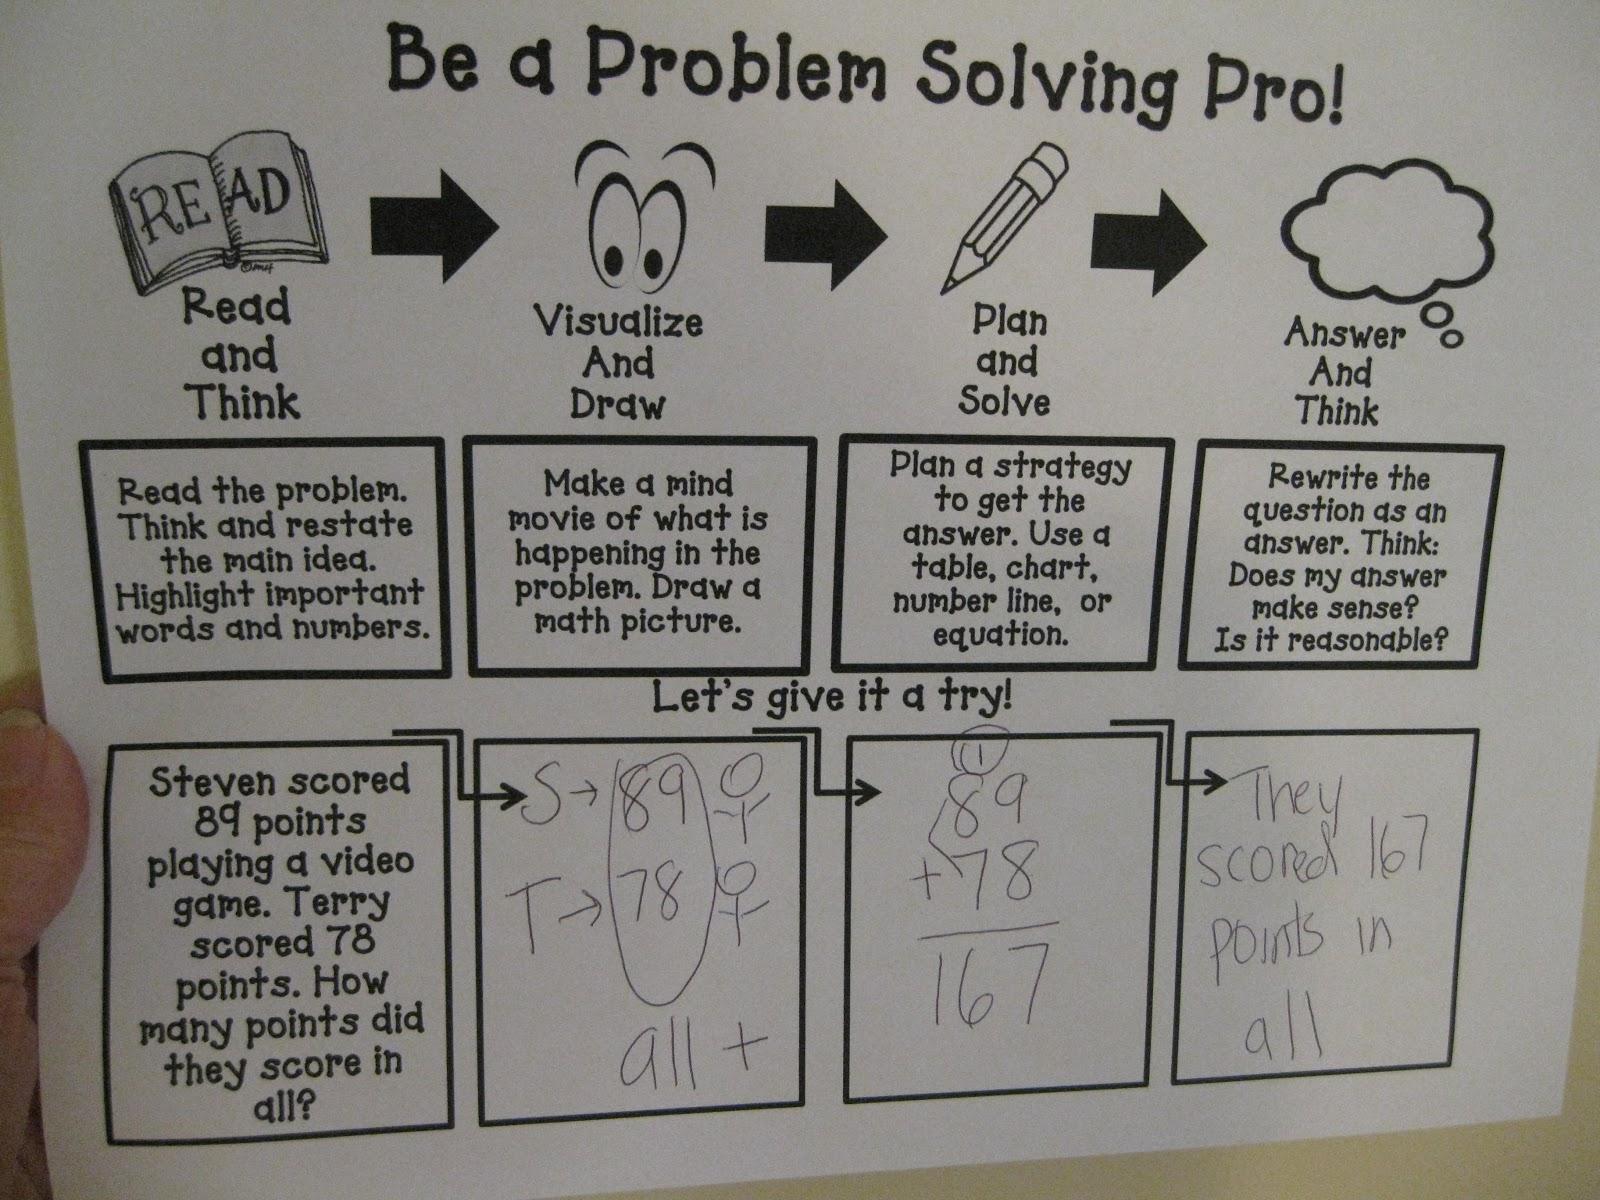 Be a Problem Solving Pro!
READ
Read
and
Think
Visualize
And
Draw
Plan
and
Solve
Answer
And
Think
Read the problem.
Think and restate
the main idea.
Highlight important
words and numbers.
Make a mind
movie of what is
happening in the
problem. Draw a
math picture.
Plan a strategy
to get the
answer. Use a
table, chart,
number line, or
equation.
Rewrite the
question as an
answer. Think:
Does my answer
make sense?
Is it reasonable?
Let's give it a try!
Steven scored
89 points
playing a video
game. Terry
scored 78
points. How
many points did
they score in
all?
S→ 89
T→ 78
all +
1
89
+78
167
They
scored 167
points in
all